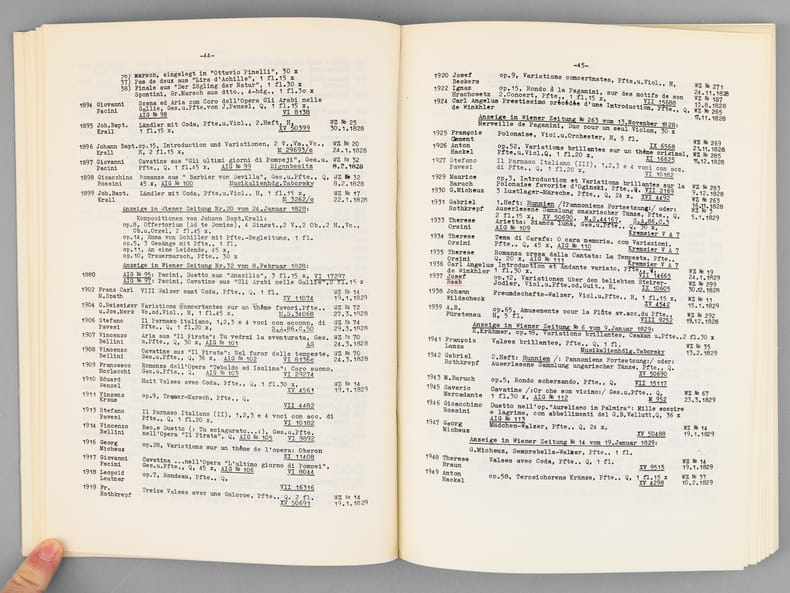 -44-
36) Marsch, eingelegt in "Ottavio Pinelli", 30 x
37) Pas de deux aus "Lira d'Achille", 1 fl.15 x
38) Finale aus "Der Zögling der Natur", 1 fl.
Spontini, Gr.Marsch aus ditto, 4-hdg., 1 fl.30 x
1894 Giovanni Scena ed Aria con Coro dell'Opera Gli Arabi nelle
Pacini Gallie, Ges.u.Pfte.von J.Pensel, Q, 1 fl.15 x,
AIG № 98 VI 8138
1895 Joh.Bapt. Ländler mit Coda, Pfte.u.Viol., 2.Heft, H, WZ № 25
Krall 1 fl.15 x XV 50399 30.1.1828
1896 Johann Bapt. op.15, Introduction und Variationen, 2 V.,Va.,Vc., WZ № 20
Krall H, 2 fl.15 x M 29693/e 24.1.1828
1897 Giovanni Cavatine aus "Gli ultimi giorni di Pompeji", Ges.u. WZ № 32
Pacini Pfte., Q, 1 fl.15 x AIG № 99 Eigenbesitz 8.2.1828
1898 Gioacchino Romanze aus "Barbier von Sevilla", Ges.u.Pfte., Q, WZ № 32
Rossini 45 x, AIG № 100 Musikalienhdg.Taborsky 8.2.1828
1899 Joh.Bapt. Ländler mit Coda, Pfte.u.Viol., H, 1 fl.15 x, WZ № 17
Krall M 3262/e 22.1.1828
Anzeige in Wiener Zeitung Nr.20 vom 24.Jänner 1828:
Kompositionen von Johann Bapt.Krall:
op.8, Offertorium (Ad te Domine), 4 Singst., 2 V., 2 Ob., 2 H., Vc.,
Ob.u.Orgel, 2 fl.45 x
op.14, Emma von Schiller mit Pfte.-Begleitung, 1 fl.
op.5, 3 Gesänge mit Pfte., 1 fl.
op.11, An eine Leidende, 45 x
op.10, Trauermarsch, Pfte., 30 x
Anzeige in Wiener Zeitung Nr.32 vom 8.Februar 1828:
1880 AIG № 95: Pacini, Duetto aus "Amazilia", 3 fl.15 x, VI 17297
AIG № 97: Pacini, Cavatine aus "Gli Arabi nelle Gallie", 2 fl.15 x
1902 Franz Carl VIII Walzer samt Coda, Pfte., Q, 1 fl. WZ № 14
M.Spath XV 11074 19.1.1829
1904 G.Reissiger Variations Concertantes sur un thême favori,Pfte., WZ № 72
u.Jos.Merk Vc.od.Viol., H, 1 fl.45 x H.S.34068 27.3.1829
1906 Stefano Il Parnaso italiano, 1,2,3 e 4 voci con accomp. di WZ № 74
Pavesi Pfte., Q, 1 fl.20 x, H.A.86.C.30 29.3.1828
1907 Vincenzo Aria aus "Il Pirata": Tu vedrai la sventurata, Ges. WZ № 70
Bellini u.Pfte., Q, 30 x, AIG № 101 AS 24.3.1828
1908 Vincenzo Cavatine aus "Il Pirata": Nel furor delle tempeste, WZ № 70
Bellini Ges.u.Pfte., Q, 36 x, AIG № 102 VI 8136e 24.3.1828
1909 Francesco Romanza dell'Opera "Tebaldo ed Isolina": Caro suono,
Morlacchi Ges.u.Pfte., AIG № 103 VI 29274
1910 Eduard Huit Valses avec Coda, Pfte., Q, 1 fl.30 x, WZ № 14
Wenzel XV 4561 19.1.1829
1911 Vinzenz op.9, Trauer-Marsch, Pfte., Q
Kraus VII 4482
1913 Stefano Il Parnaso Italiano (II), 1,2,3 e 4 voci con acc. di
Pavesi Pfte., Q, 1 fl.20 x VI 10182
1914 Vincenzo Rec.e Duetto (: Tu sciagurato...:), Ges.u.Pfte.
Bellini nell'Opera "Il Pirata", Q, AIG № 105 VI 9892
1916 Georg op.28, Variations sur un thême de l'opera: Oberon
Micheuz XI 11408
1917 Giovanni Cavatina ...nell'Opera "L'ultimo giorno di Pompei",
Pacini Ges.u.Pfte., Q, 45 x, AIG № 106 VI 8044
1918 Leopold op.7, Rondeau, Pfte., Q
Leutner VII 16316
1919 Fr. Treize Valses avec une Galoppe, Pfte., Q, 2 fl. WZ № 14
Rothkrepf XV 50691 19.1.1829
-45-
1920 Josef op.9, Variations concertantes, Pfte.u.Viol., H, WZ № 271
Beckera 24.11.1828
1922 Ignaz op.15, Rondo À la Paganini, sur des motifs de son WZ № 187
Hrachowetz 2.Concert, Pfte., Q, 1 fl. VII 15688 13.8.1828
1924 Carl Angelus Prestissimo précédée d'une Introduction, Pfte., Q, WZ № 265
de Winkhler 17.11.1828
Anzeige in Wiener Zeitung № 263 vom 13.November 1828:
Merveille de Paganini, Duo pour un seul Violon, 30 x
1925 François Polonaise, Viol.u.Orchester, H, 5 fl. WZ № 269
Clement IX 6568 21.11.1828
1926 Anton op.52, Variations brillantes sur un thême original, WZ № 285
Hackel Pfte.u.Viol.Q, 1 fl.20 x, XI 16625 11.12.1828
1927 Stefano Il Parnaso Italiano (III), 1,2,3 e 4 voci con acc. di
Pavesi Pfte., Q, 1 fl.20 x, VI 10182
1929 Maurice op.3, Introduction et Variations brillantes sur la WZ № 283
Baruch Polonaise favorite d'Oginski, Pfte., VII 2169 9.12.1828
1930 G.Micheuz 3 Lustlager-Märsche, Pfte., Q, 24 x, XVI 4492 WZ № 263
1931 Gabriel 1.Heft: Hunnien /:Pannoniens Fortsetzung:/ oder: WZ № 3
Rothkrepf Auserlesene Sammlung ungarischer Tänze, Pfte., Q, 5.1.1829
2 fl.15 x, XV 50690, M.S.44167, S.A.86.C.3
1933 Therese Arietta: Bianca luna, Ges.u.Pfte., Q, 30 x,
Orsini AIG № 109 Kremsier V A 7
1934 Therese Tema di Carafa: O cara memoria, con Variazioni,
Orsini Pfte., Q, 45 x, AIG № 110 Kremsier V A 7
1935 Therese Romanza presa dalla Cantata: La Tempesta, Pfte.,
Orsini Q, 20 x, AIG № 111 Kremsier V A 7
1936 Carl Angelus Introduction et Andante variato, Pfte., H, WZ № 19
de Winkhler 1 fl.30 x, VII 14665 24.1.1829
1937 Josef op.12, Variationen über den beliebten Steirer- WZ № 299
Raab Jodler, Viol.u.Pfte.od.Guit., H, IX 10605 30.12.1828
1938 Johann Freundschafts-Walzer, Viol.u.Pfte., H, 1 fl.15 x, WZ № 11
Wildscheck XV 4542 15.1.1829
1939 A.B. op.65, Amusements pour la Flûte av.acc.du Pfte., WZ № 292
Fürstenau H, 5 fl. VIII 9252 19.12.1828
Anzeige in Wiener Zeitung № 6 vom 9.Jänner 1829:
W.Krähmer, op.18, Variations brillantes, Csakan u.Pfte.,2 fl.30 x
1941 François Valses brillantes, Pfte., Q, 1 fl. WZ № 35
Lanza Musikalienhdg.Taborsky 13.2.1829
1942 Gabriel 2.Heft: Hunnien /: Pannoniens Fortsetzung:/ oder:
Rothkrepf Auserlesene Sammlung ungarischer Tänze, Pfte.
XV 50690
1943 M.Baruch op.5, Rondo scherzando, Pfte., Q VII 15117
1945 Saverio Cavatine /:Or che son vicino:/ Ges.u.Pfte., Q WZ № 67
Mercadante 1 fl.30 x, AIG № 112 M 952 23.3.1829
1946 Gioacchino Duetto nell'op."Aureliano in Palmira": Mille sospire
Rossini e lagrime, con abbellimenti del G.B.Velluti,Q, 36 x
AIG № 113
1947 Georg Mädchen-Walzer, Pfte., Q, 24 x, WZ № 14
Micheuz XV 50488 19.1.1829
Anzeige in Wiener Zeitung № 14 vom 19.Jänner 1829:
G.Micheuz, Semprebella-Walzer, Pfte., 1 fl.
1948 Therese Valses avec Coda, Pfte., Q, 1 fl. WZ № 14
Braun XV 9515 19.1.1829
1949 Anton op.58, Terpsichorens Kränze, Pfte., Q, 1 fl.15 x WZ № 33
Hackel XV 4298 10.2.1829